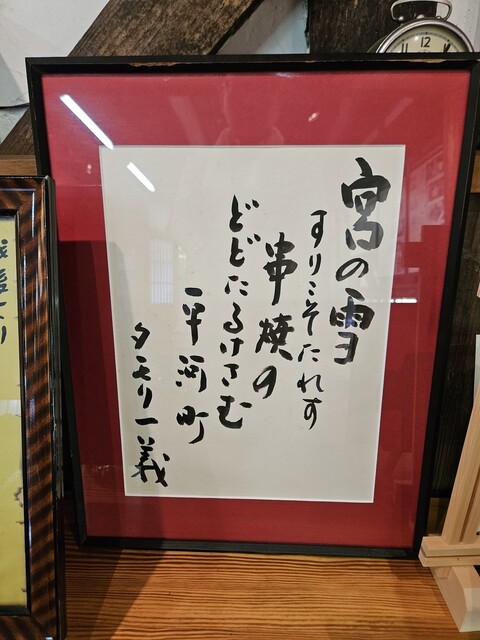 宮の雪
すりこそたれす
串焼の
どどたるけさむ
平河町
タモリ一義
12